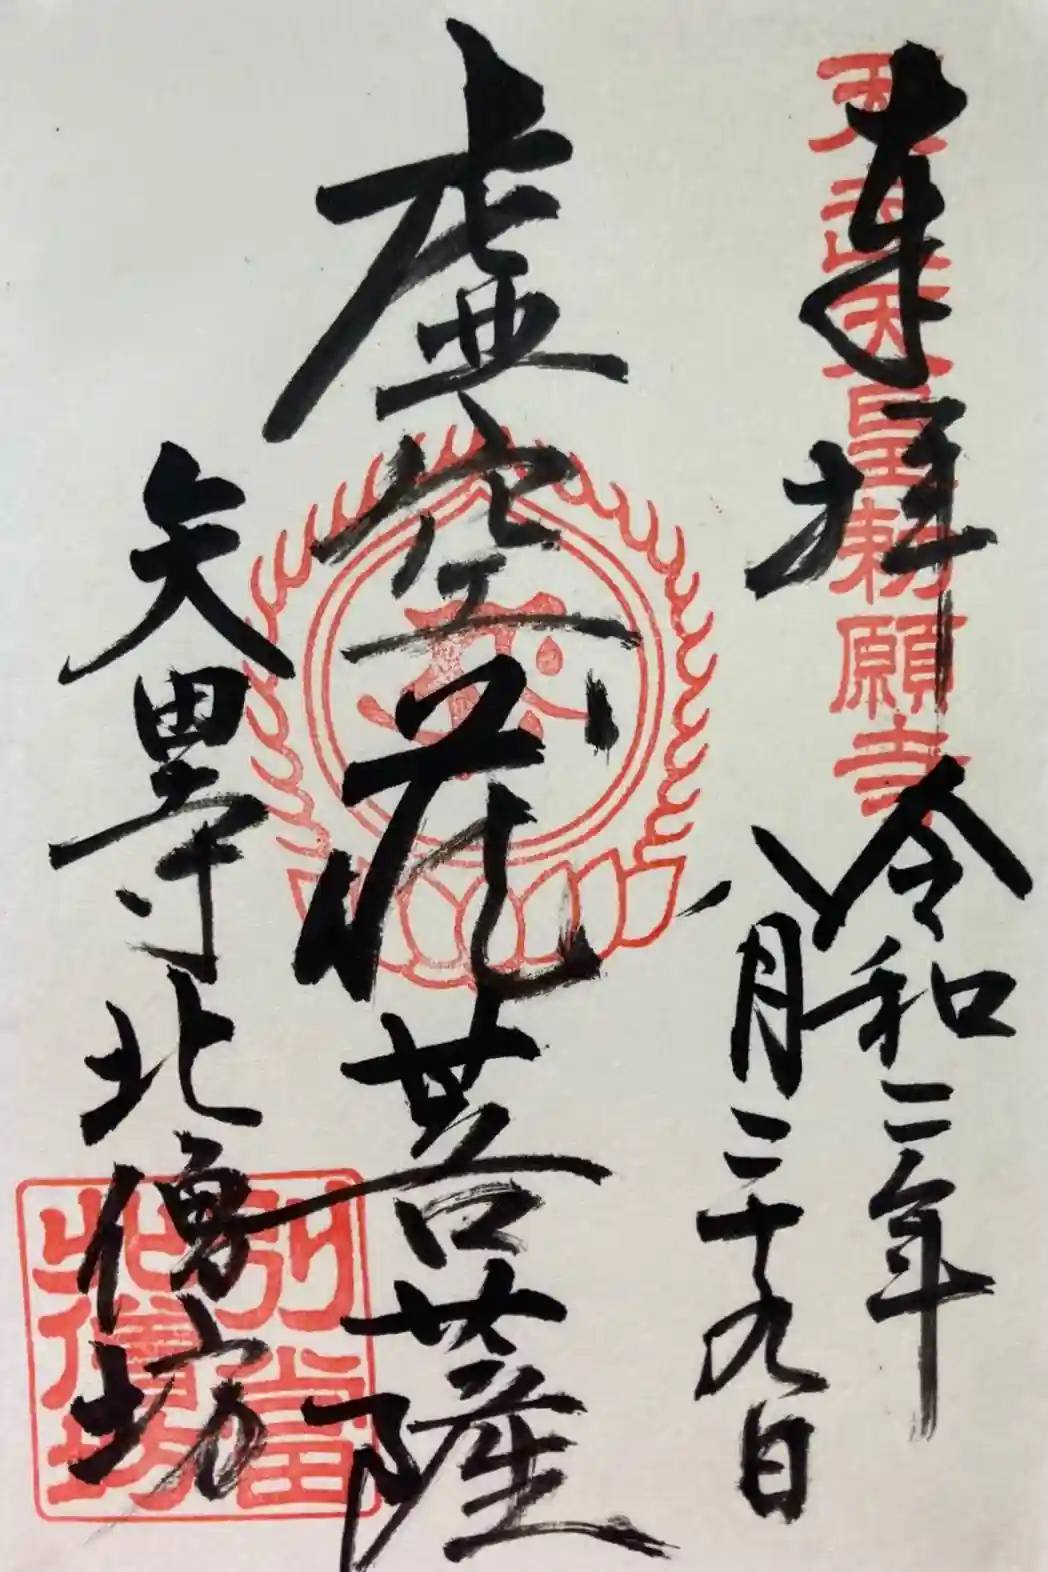 奉拝
天武天皇勅願寺
令和二年
八月二十九日
虚空蔵菩薩
矢田寺北僧坊
別当
北僧坊